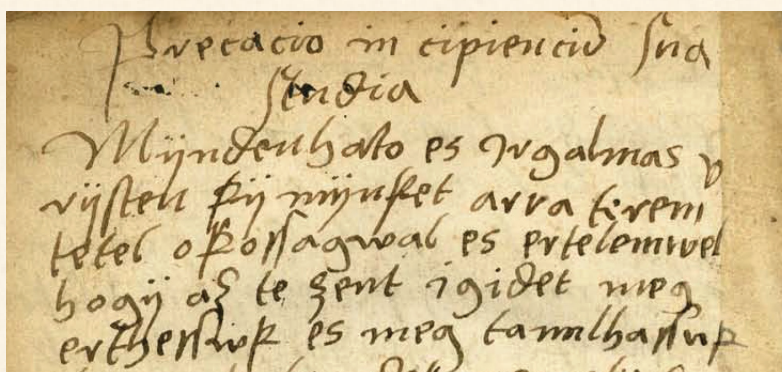 Precacio in cipienciū sua
studia
Mijndenhato es Irgalmas v
rijsten kij mijnket arra terem
tetel okossagwal es ertelemwel
hogij az te zent igidet meg
erthesswk es meg tanulhassuk